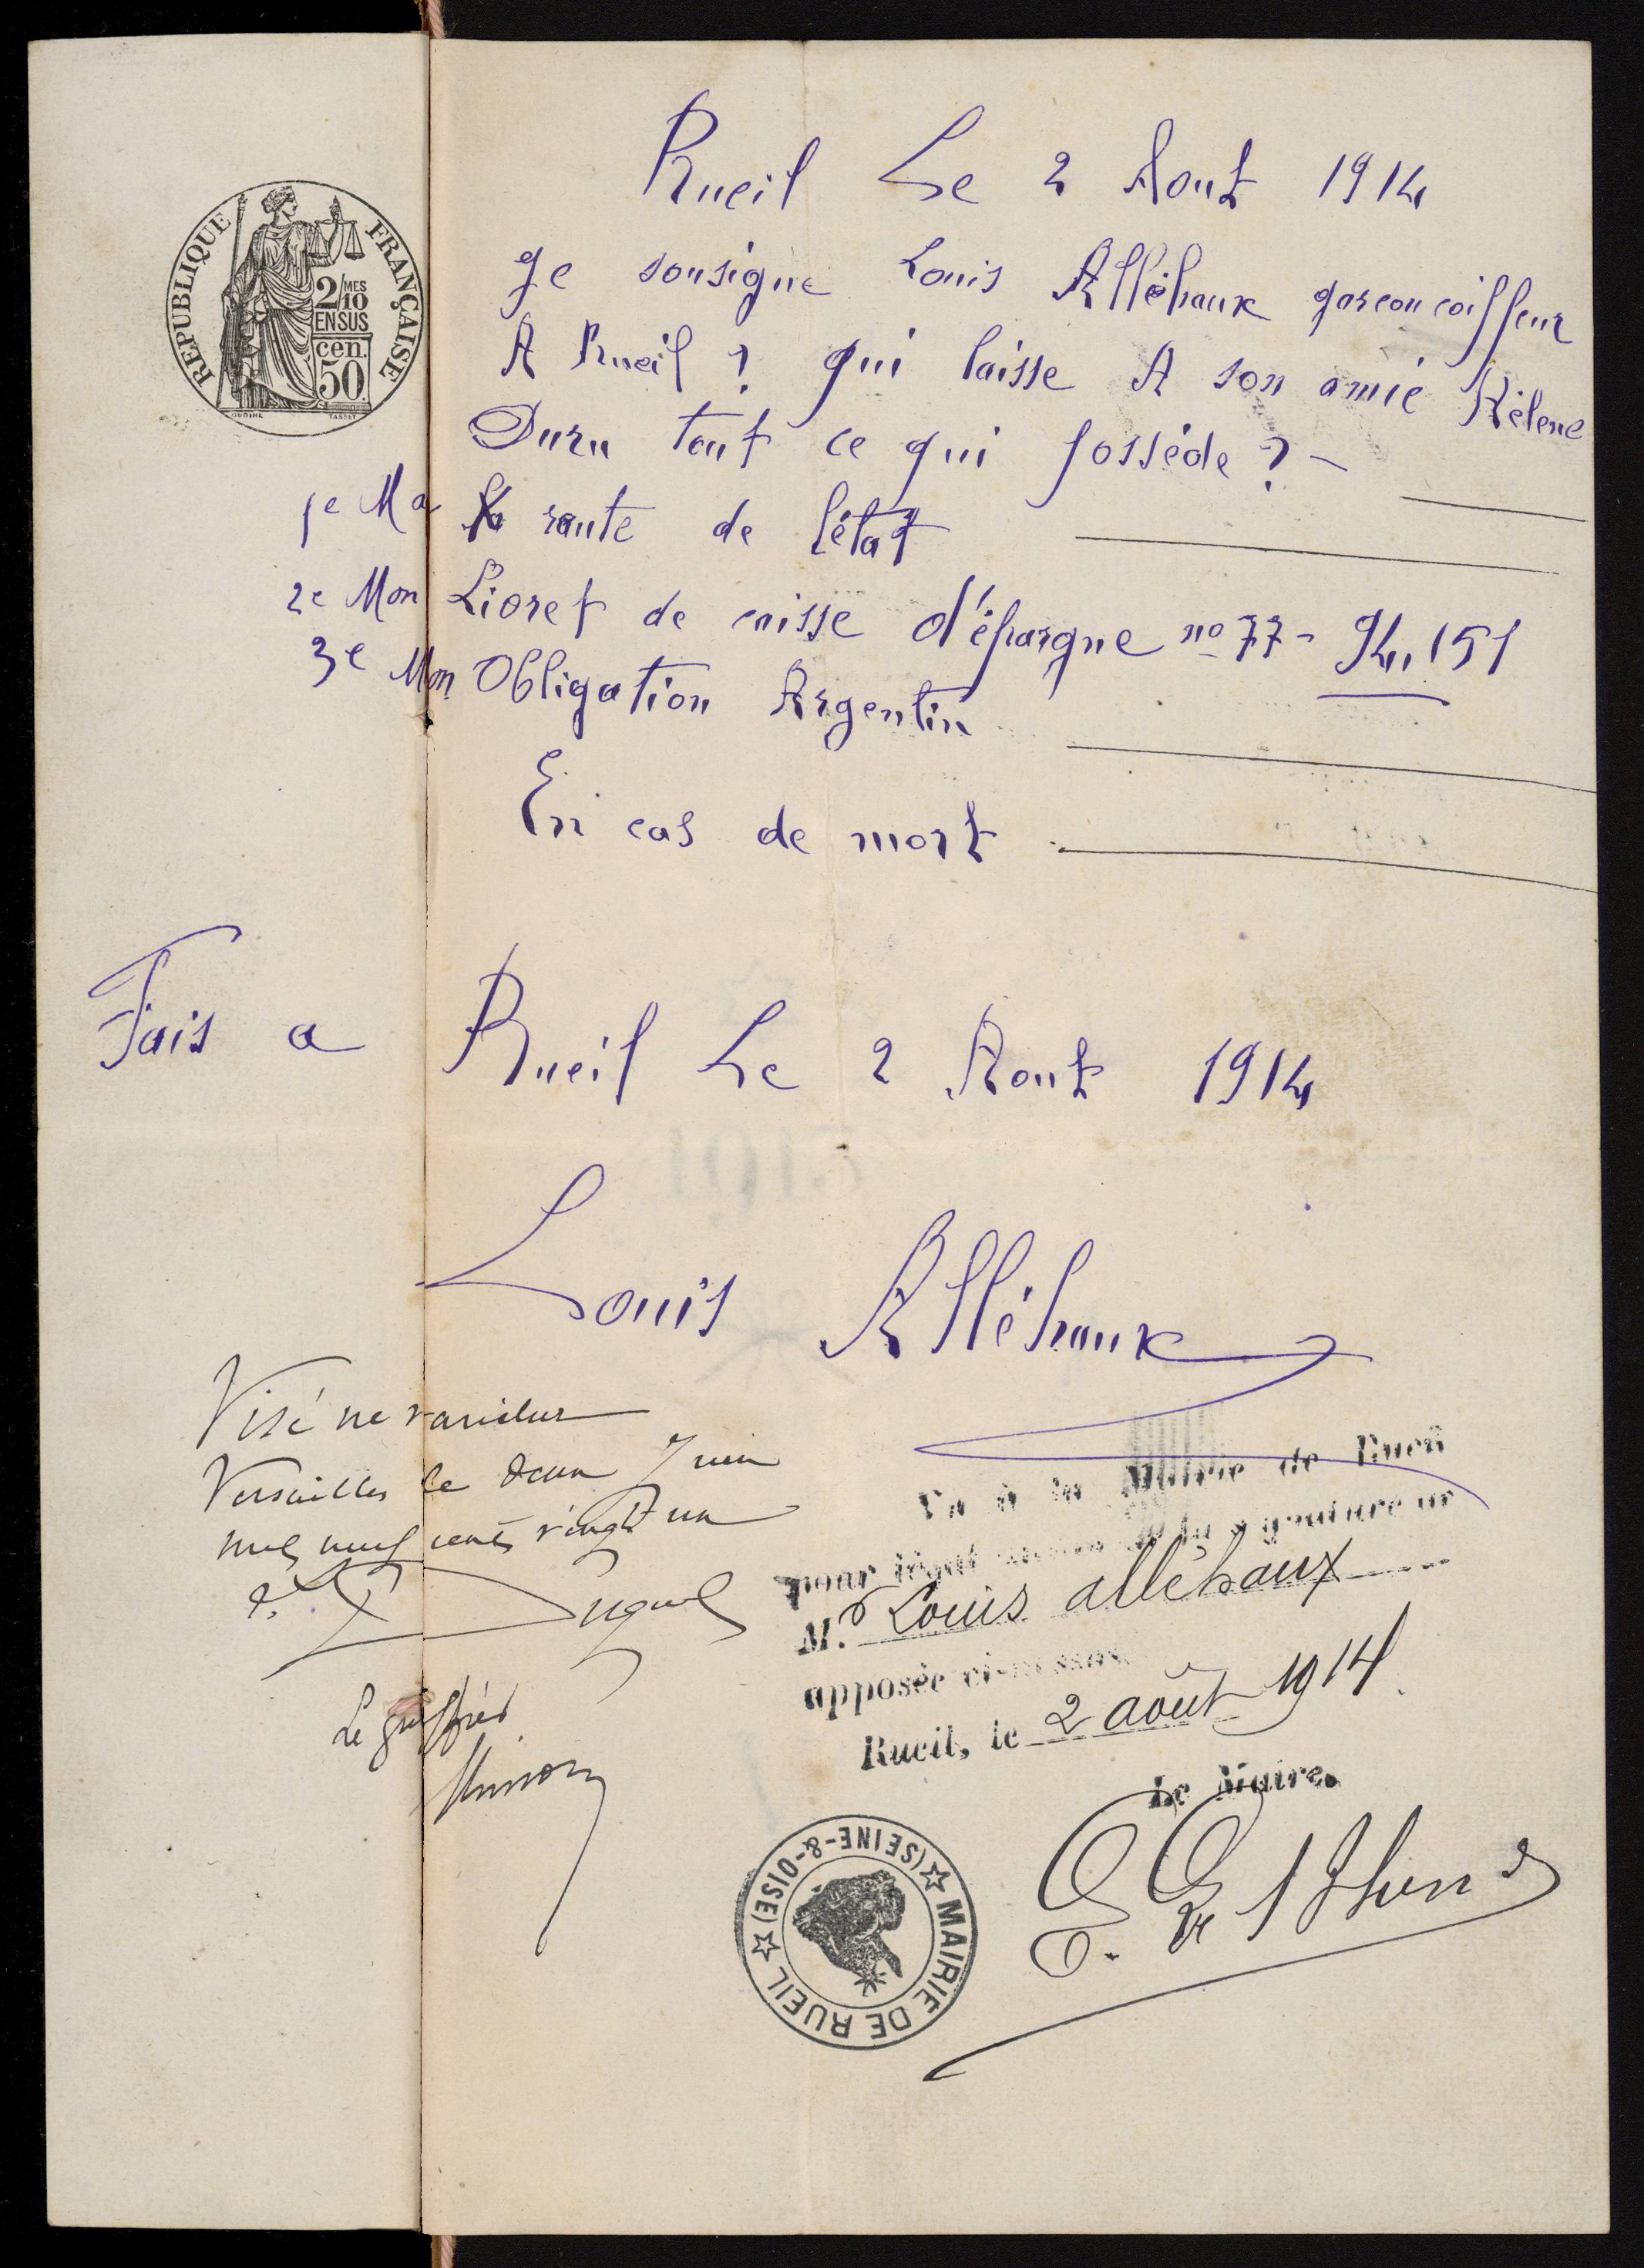 Rueil Le 2 Aout 1914
REPUBLIQUE FRANÇAISE
2/MES
10
EN SUS
cen.
50
OUDINÉ TASSET
Je sousigne Louis Alléhaux garcon coiffeur
A Rueil ? qui laisse A son amie Hélene
Duru tout ce qui possède ? -
1e Ma rante de l'état
2e Mon Livret de caisse d'épargne no 77 - 94,151
3e Mon Obligation Argentin
En cas de mort
Fais a Rueil Le 2 Aout 1914
Louis Alléhaux
Visé ne varietur
Versailles le deux Juin
mil neuf cent vingt un
Le greffier
Vu à la Mairie de Rueil
pour légalisation de la signature de
M. Louis alléhaux
apposée ci-dessus.
Rueil, le 2 août 1914
Le Maire.
MAIRIE DE RUEIL (SEINE-&-OISE)